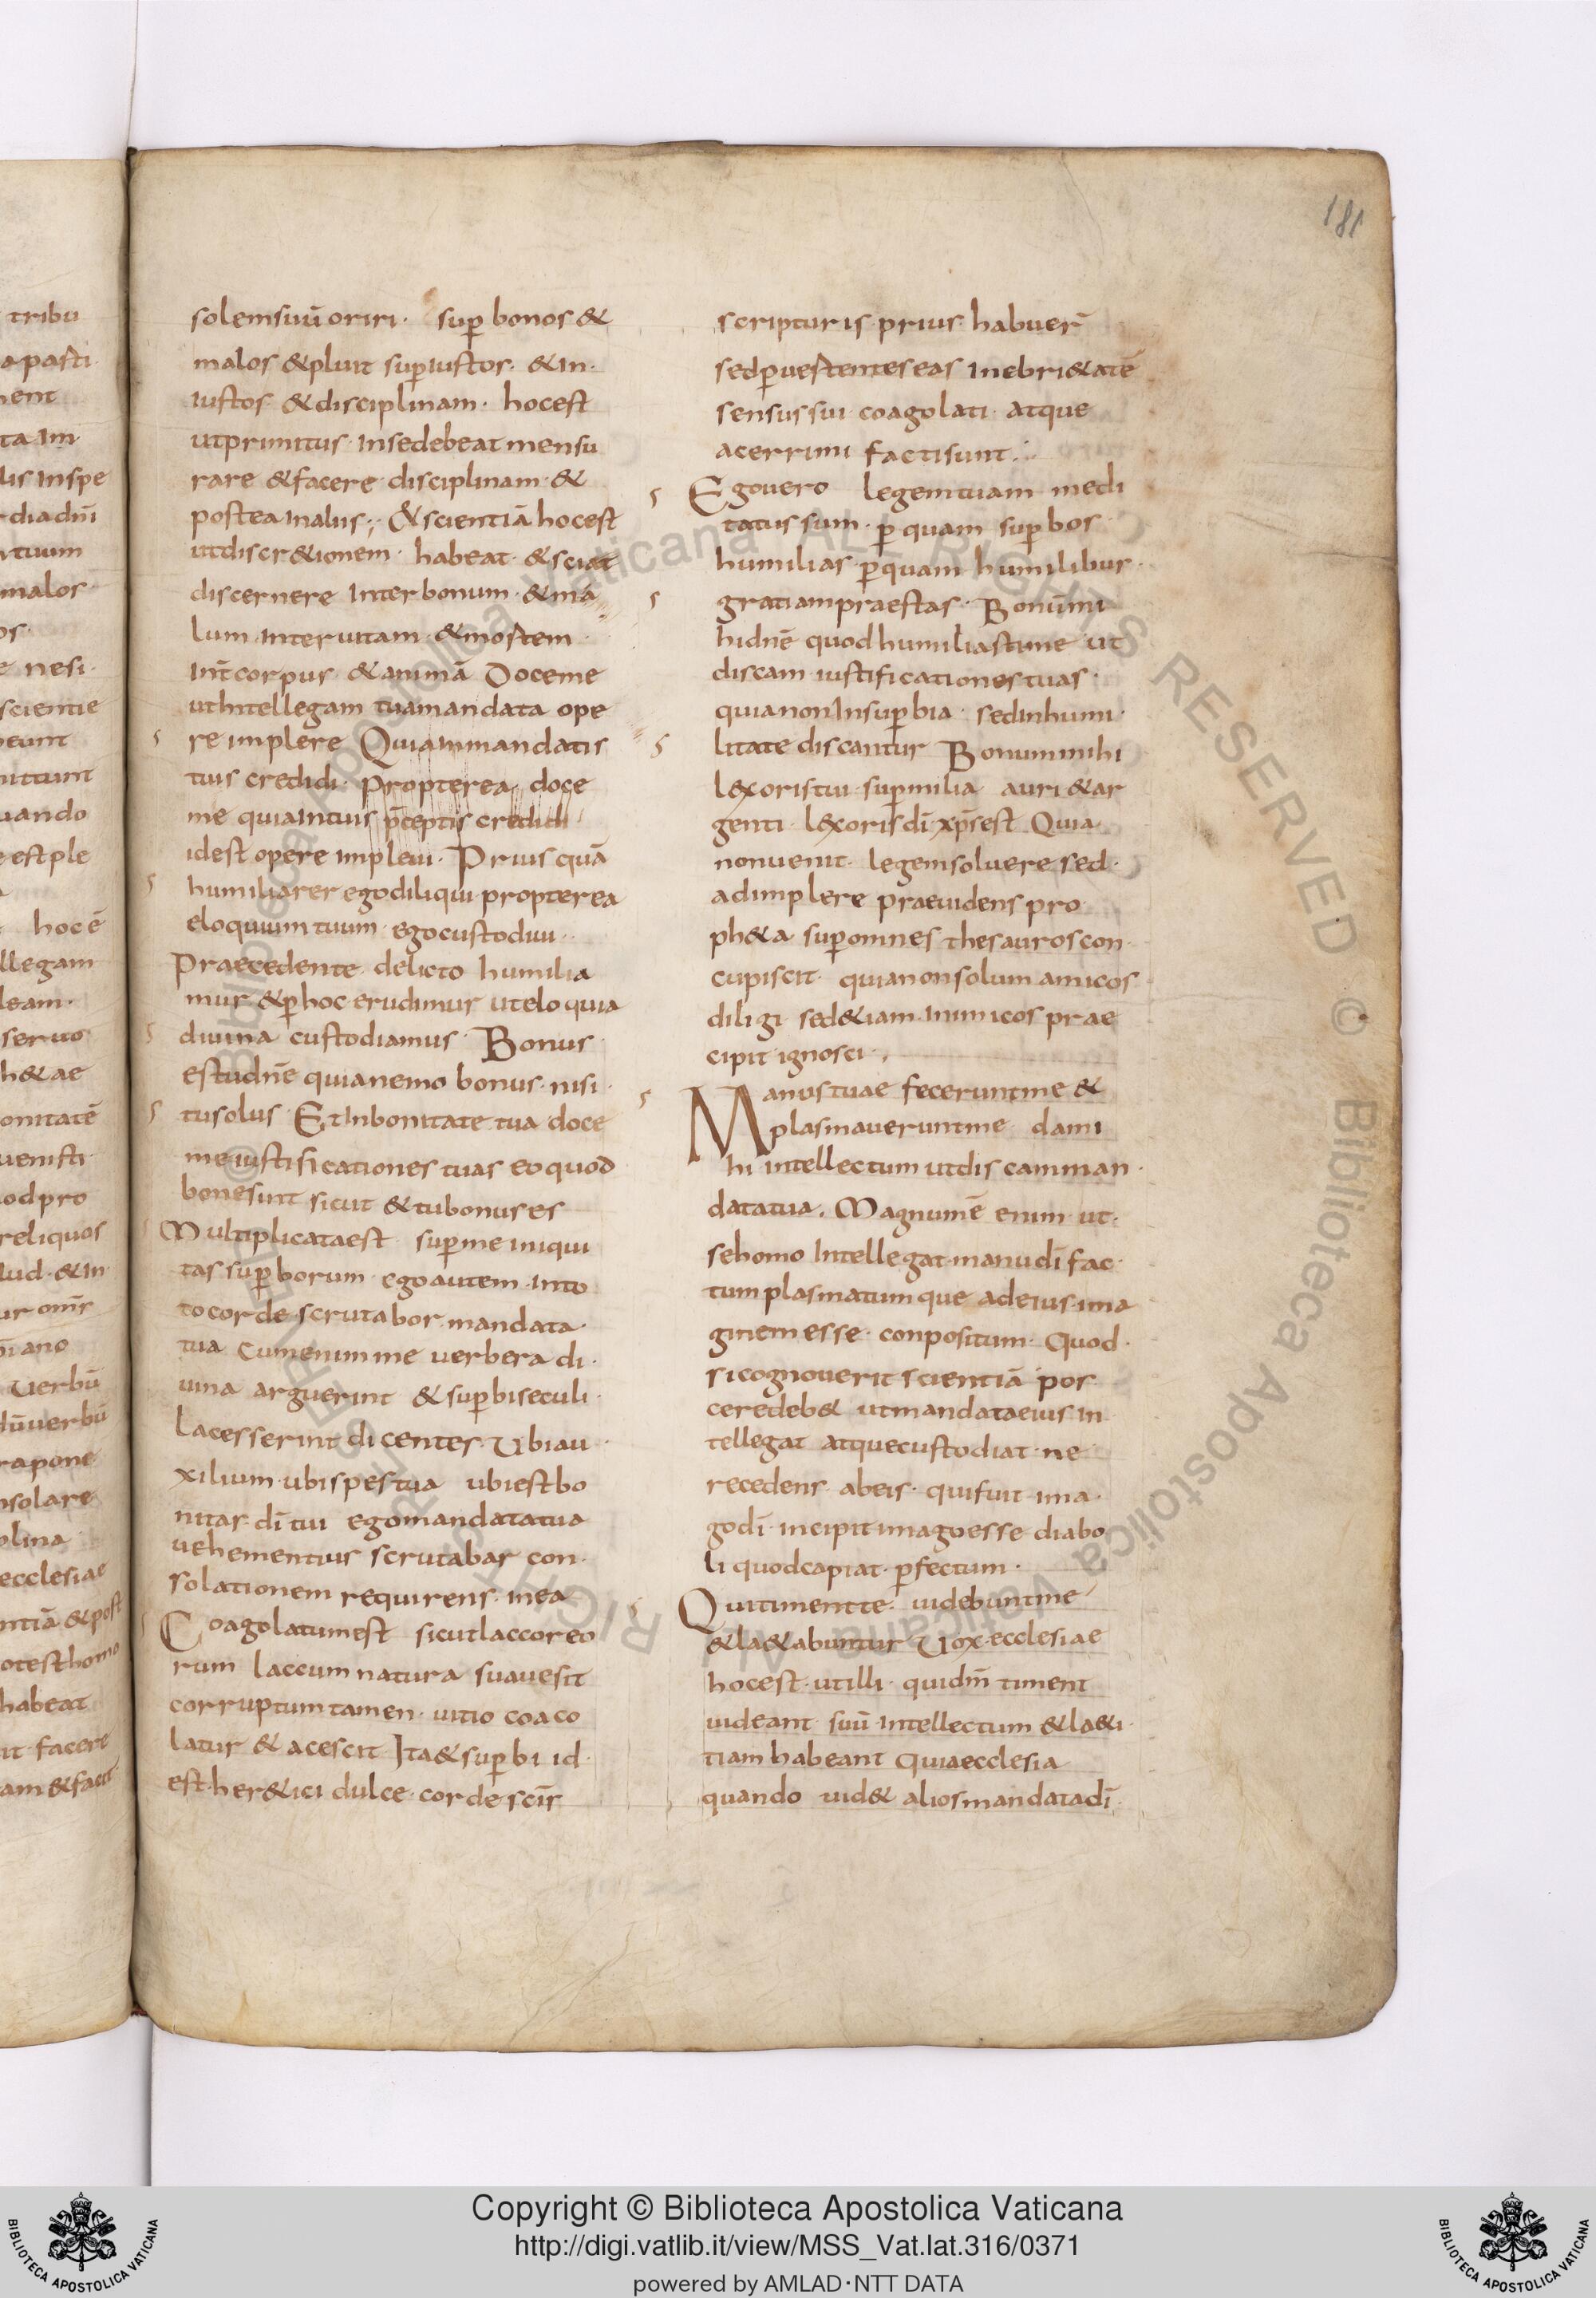 181
solemsuū oriri· sup̄ bonos &
malos &pluit sup̄iustos· &in·
iustos &disciplinam· hocest
utprimitus· insedebeat mensu
rare &facere disciplinam· &
postea inalus; &scientiā hocest
utdiscr&ionem· habeat· &sciat
discernere interbonum· &ma
lum interuitam &mortem·
int̄ corpus &animā Doceme
utintellegam tuamandata ope
re implere Quiainmandatis
tuis credidi· propterea doce
me quiaintuis p̄ceptis credidi
idest opere impleui· Prius quā
humiliarer egodiliqui propterea
eloquium tuum· egocustodiui·
Praecedente delicto humilia
mur &p̄hoc erudimur uteloquia
diuina custodiamus· Bonus
estudnē quianemo bonus· nisi·
tusolus· Etinbonitate tua doce
me iustificationes tuas eo quod
bonesunt sicut &tubonus es
Multiplicataest sup̄me iniqui
tas sup̄borum· egoautem· into
tocorde scrutabor mandata·
tua cumenimme uerbera di·
uina arguerint &sup̄biseculi·
lacesserint dicentes· Ubiau
xilium· ubispestua ubiestbo
nitas dī tui egomandatatua
uehementius scrutabar con·
solationem requirens· mea
Coagolatumest sicutlaccoreo
rum laccumnatura suauesit
corruptumtamen· uitio coaco
latur & acescit Ita&sup̄bi id·
est·her&ici dulce·cordescīs
scripturis prius habuer̄
sedp̄uestenteseas inebri&atē
sensussui coagolati· atque
acerrimi factisunt·
Egouero legemtuam medi
tatussum· p̄ quam sup̄bos·
humilias p̄quam humilibus·
gratiampraestas· Bonūmi
hidnē quodhumiliastime ut
discam iustificationestuas·
quianoninsup̄bia· sedinhumi·
litate discantur Bonummihi
lexoristui· sup̄milia auri &ar
genti· lexorisdī xp̄sest Quia
nonuenit· legemsoluere sed·
adimplere praeuidens pro
ph&a sup̄omnes thesauroscon·
cupiscit· quianonsolum amicos
diligi sed&iam inimicos prae
cipit ignosci·
Manustuae feceruntme &
plasmaueruntme dami
hi intellectum utdiscamman·
datatua. Magnumē enim ut·
sehomo intellegat·manudī fac·
tum plasmatumque adeius·ima
ginemesse· conpositum· Quod·
sicognouerit scientiā pos
ceredeb& utmandataeius in·
tellegat atquecustodiat· ne
recedens abeis· quifuit ima·
godī· incipit imagoesse diabo
li quodcapiat· p̄fectum·
Quitimentte· uidebuntme
&la&abuntur Uox ecclesiae
hocest·utilli· quidn̄m timent
uideant suū intellectum &la&i·
tiam habeant Quiaecclesia
quando uid& aliosmandatadī·
Copyright © Biblioteca Apostolica Vaticana
http://digi.vatlib.it/view/MSS_Vat.lat.316/0371
powered by AMLAD·NTT DATA